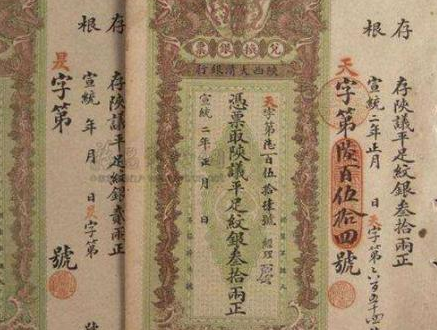 存根
存陝議平足紋銀叁拾兩正
宣統二年正月 日 天字第六百五十四
天字第陸百伍拾四號
兌換銀票
陝西大清銀行
天字第陸百伍拾肆號 經理
憑票取陝議平足紋銀叁拾兩正
宣統二年正月 日
存根
存陝議平足紋銀貳兩正
宣統 年 月 日 字第
字第 號